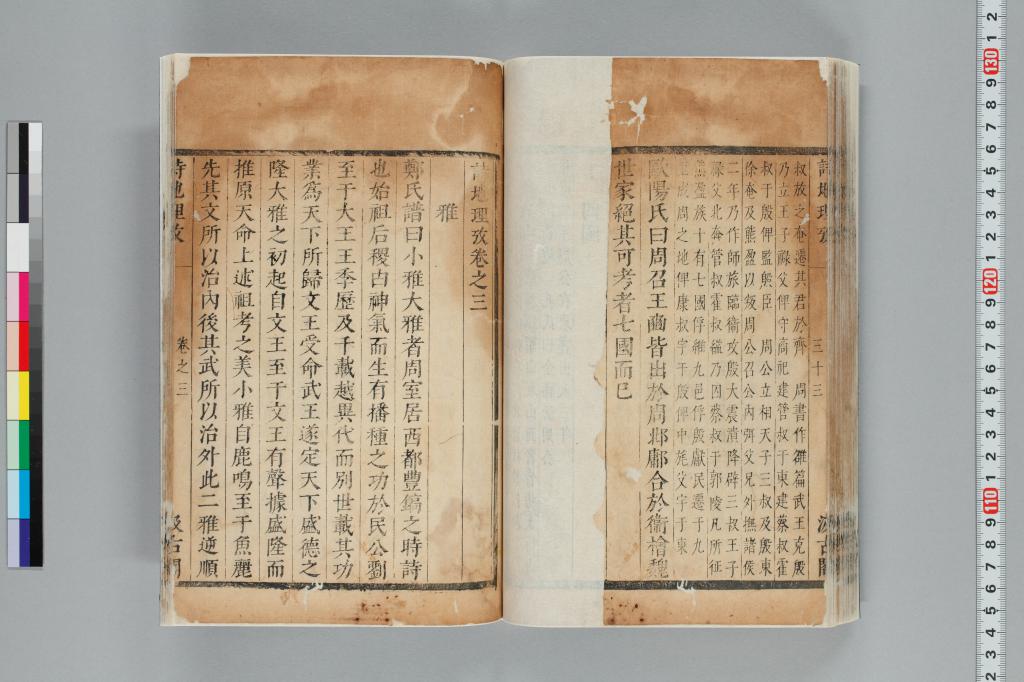 詩地理攷 三十三 汲古閣
叔放之奄遷其君於齊 周書作雒篇武王克殷
乃立王子祿父俾守商祀建管叔于東建蔡叔霍
叔于殷俾監殷臣 周公立相天子三叔及殷東
徐奄及熊盈以叛周公召公內弭父兄外撫諸侯
二年乃作師旅臨衛攻殷大震潰降辟三叔王子
祿父北奔管叔霍叔縊乃囚蔡叔于郭陵凡所征
熊盈族十有七國俘維九邑俘殷獻民遷于九
成周之地俾康叔宇于殷俾中旄父宇于東
歐陽氏曰周召王豳皆出於周邶鄘合於衛檜魏
世家絕其可考者七國而已
詩地理攷卷之三
雅
鄭氏譜曰小雅大雅者周室居西都豐鎬之時詩
也始祖后稷由神氣而生有播種之功於民公劉
至于大王王季歷及千載越異代而別世載其功
業為天下所歸文王受命武王遂定天下盛德之
隆大雅之初起自文王至于文王有聲據盛隆而
推原天命上述祖考之美小雅自鹿鳴至于魚麗
先其文所以治內後其武所以治外此二雅逆順
詩地理攷 卷之三 汲古閣